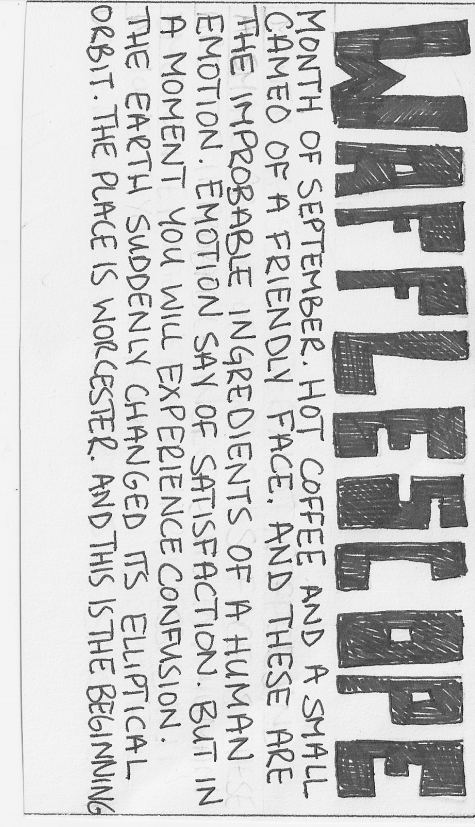 WAFFLESCOPE
MONTH OF SEPTEMBER. HOT COFFEE AND A SMALL
CAMEO OF A FRIENDLY FACE. AND THESE ARE
THE IMPROBABLE INGREDIENTS OF A HUMAN
EMOTION. EMOTION SAY OF SATISFACTION. BUT IN
A MOMENT YOU WILL EXPERIENCE CONFUSION.
THE EARTH SUDDENLY CHANGED ITS ELLIPTICAL
ORBIT. THE PLACE IS WORCESTER. AND THIS IS THE BEGINNING